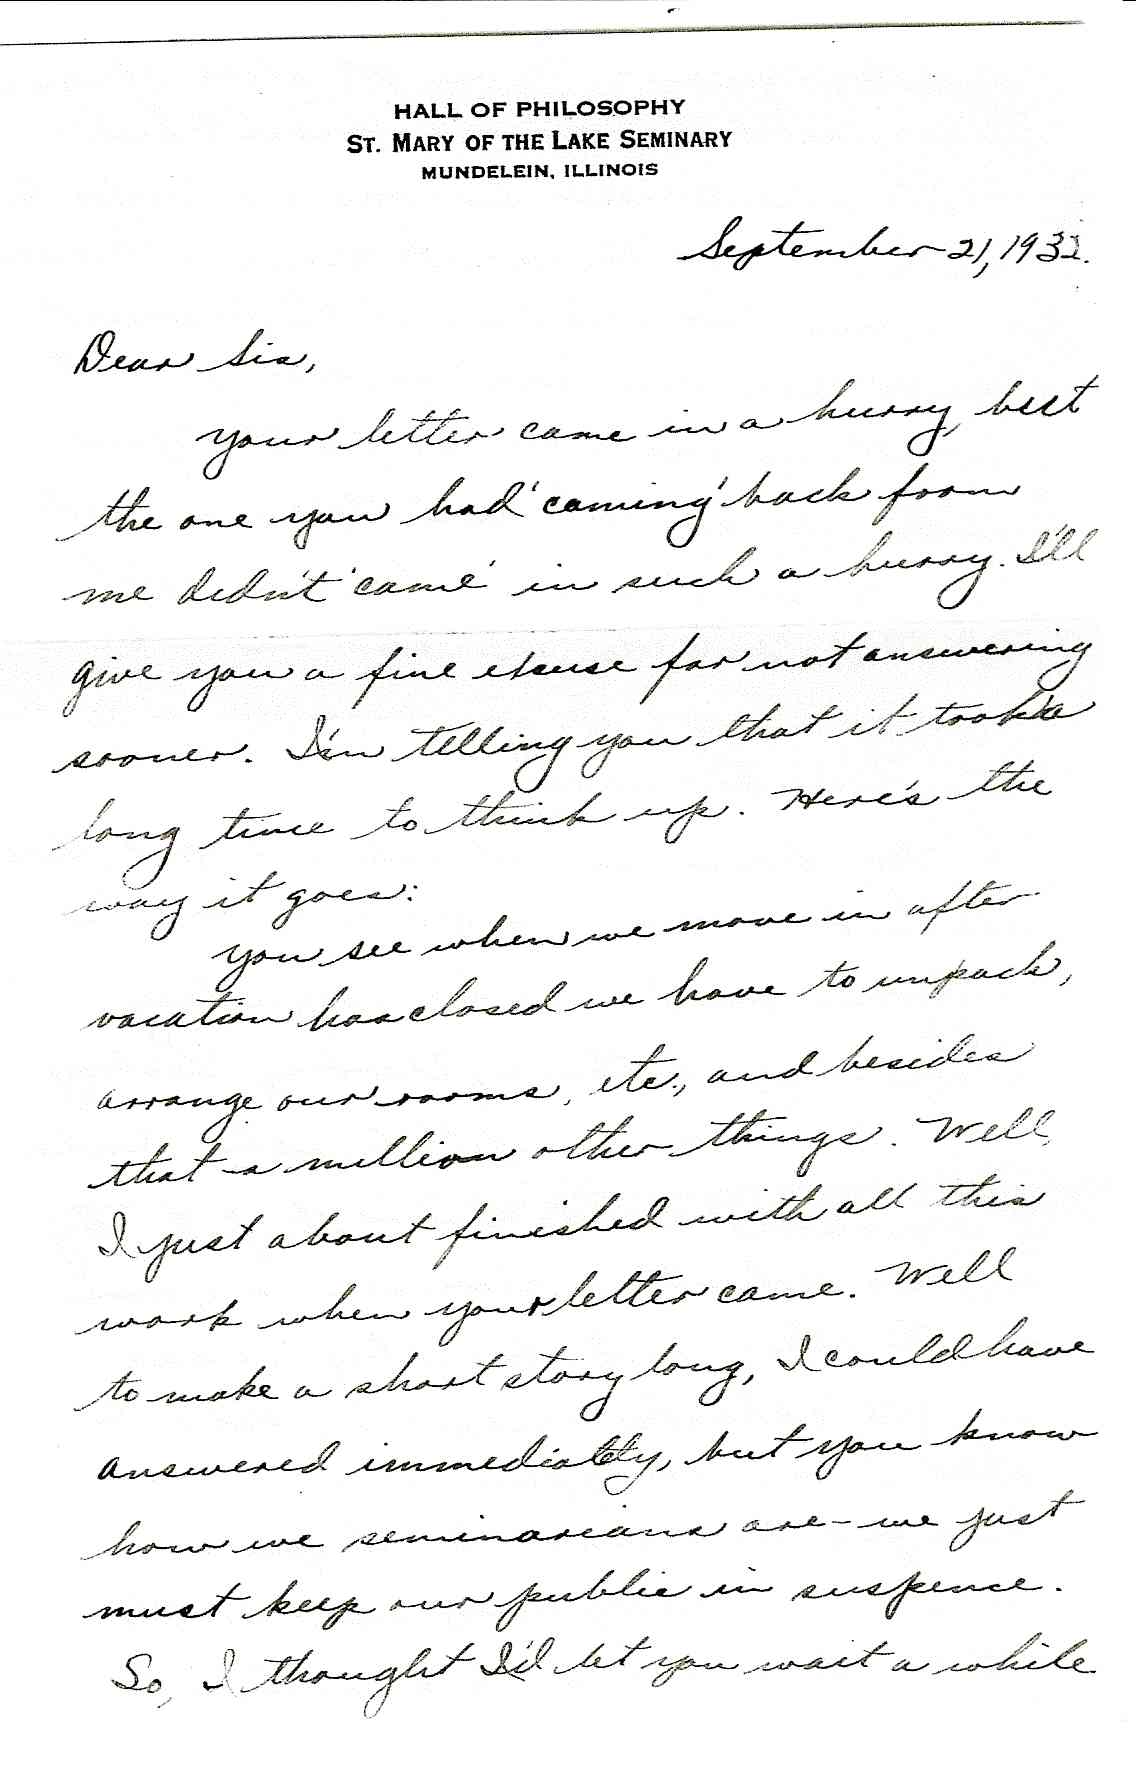 HALL OF PHILOSOPHY
ST. MARY OF THE LAKE SEMINARY
MUNDELEIN, ILLINOIS
September 21, 1932.
Dear Sis,
Your letter came in a hurry, but
the one you had 'coming' back from
me didn't 'came' in such a hurry. I'll
give you a fine excuse for not answering
sooner. I'm telling you that it took a
long time to think up. Here's the
way it goes:
You see when we move in after
vacation has closed we have to unpack,
arrange our rooms, etc., and besides
that a million other things. Well,
I just about finished with all this
work when your letter came. Well
to make a short story long, I could have
answered immediatly, but you know
how we seminarians are - we just
must keep our public in suspence.
So, I thought I'd let you wait a while